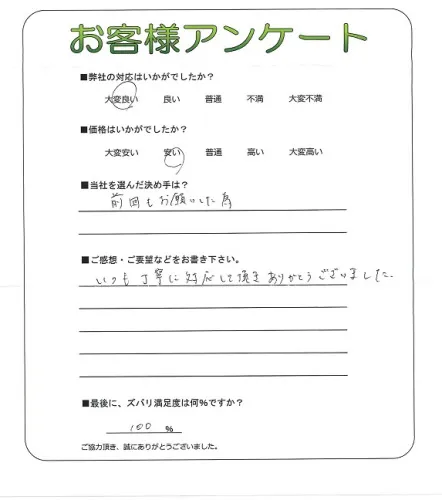 お客様アンケート
■弊社の対応はいかがでしたか？
大変良い 良い 普通 不満 大変不満
■価格はいかがでしたか？
大変安い 安い 普通 高い 大変高い
■当社を選んだ決め手は？
前回もお願いした為
■ご感想・ご要望などをお書き下さい。
いつも丁寧に対応して頂きありがとうございました。
■最後に、ズバリ満足度は何%ですか？
100 %
ご協力頂き、誠にありがとうございました。